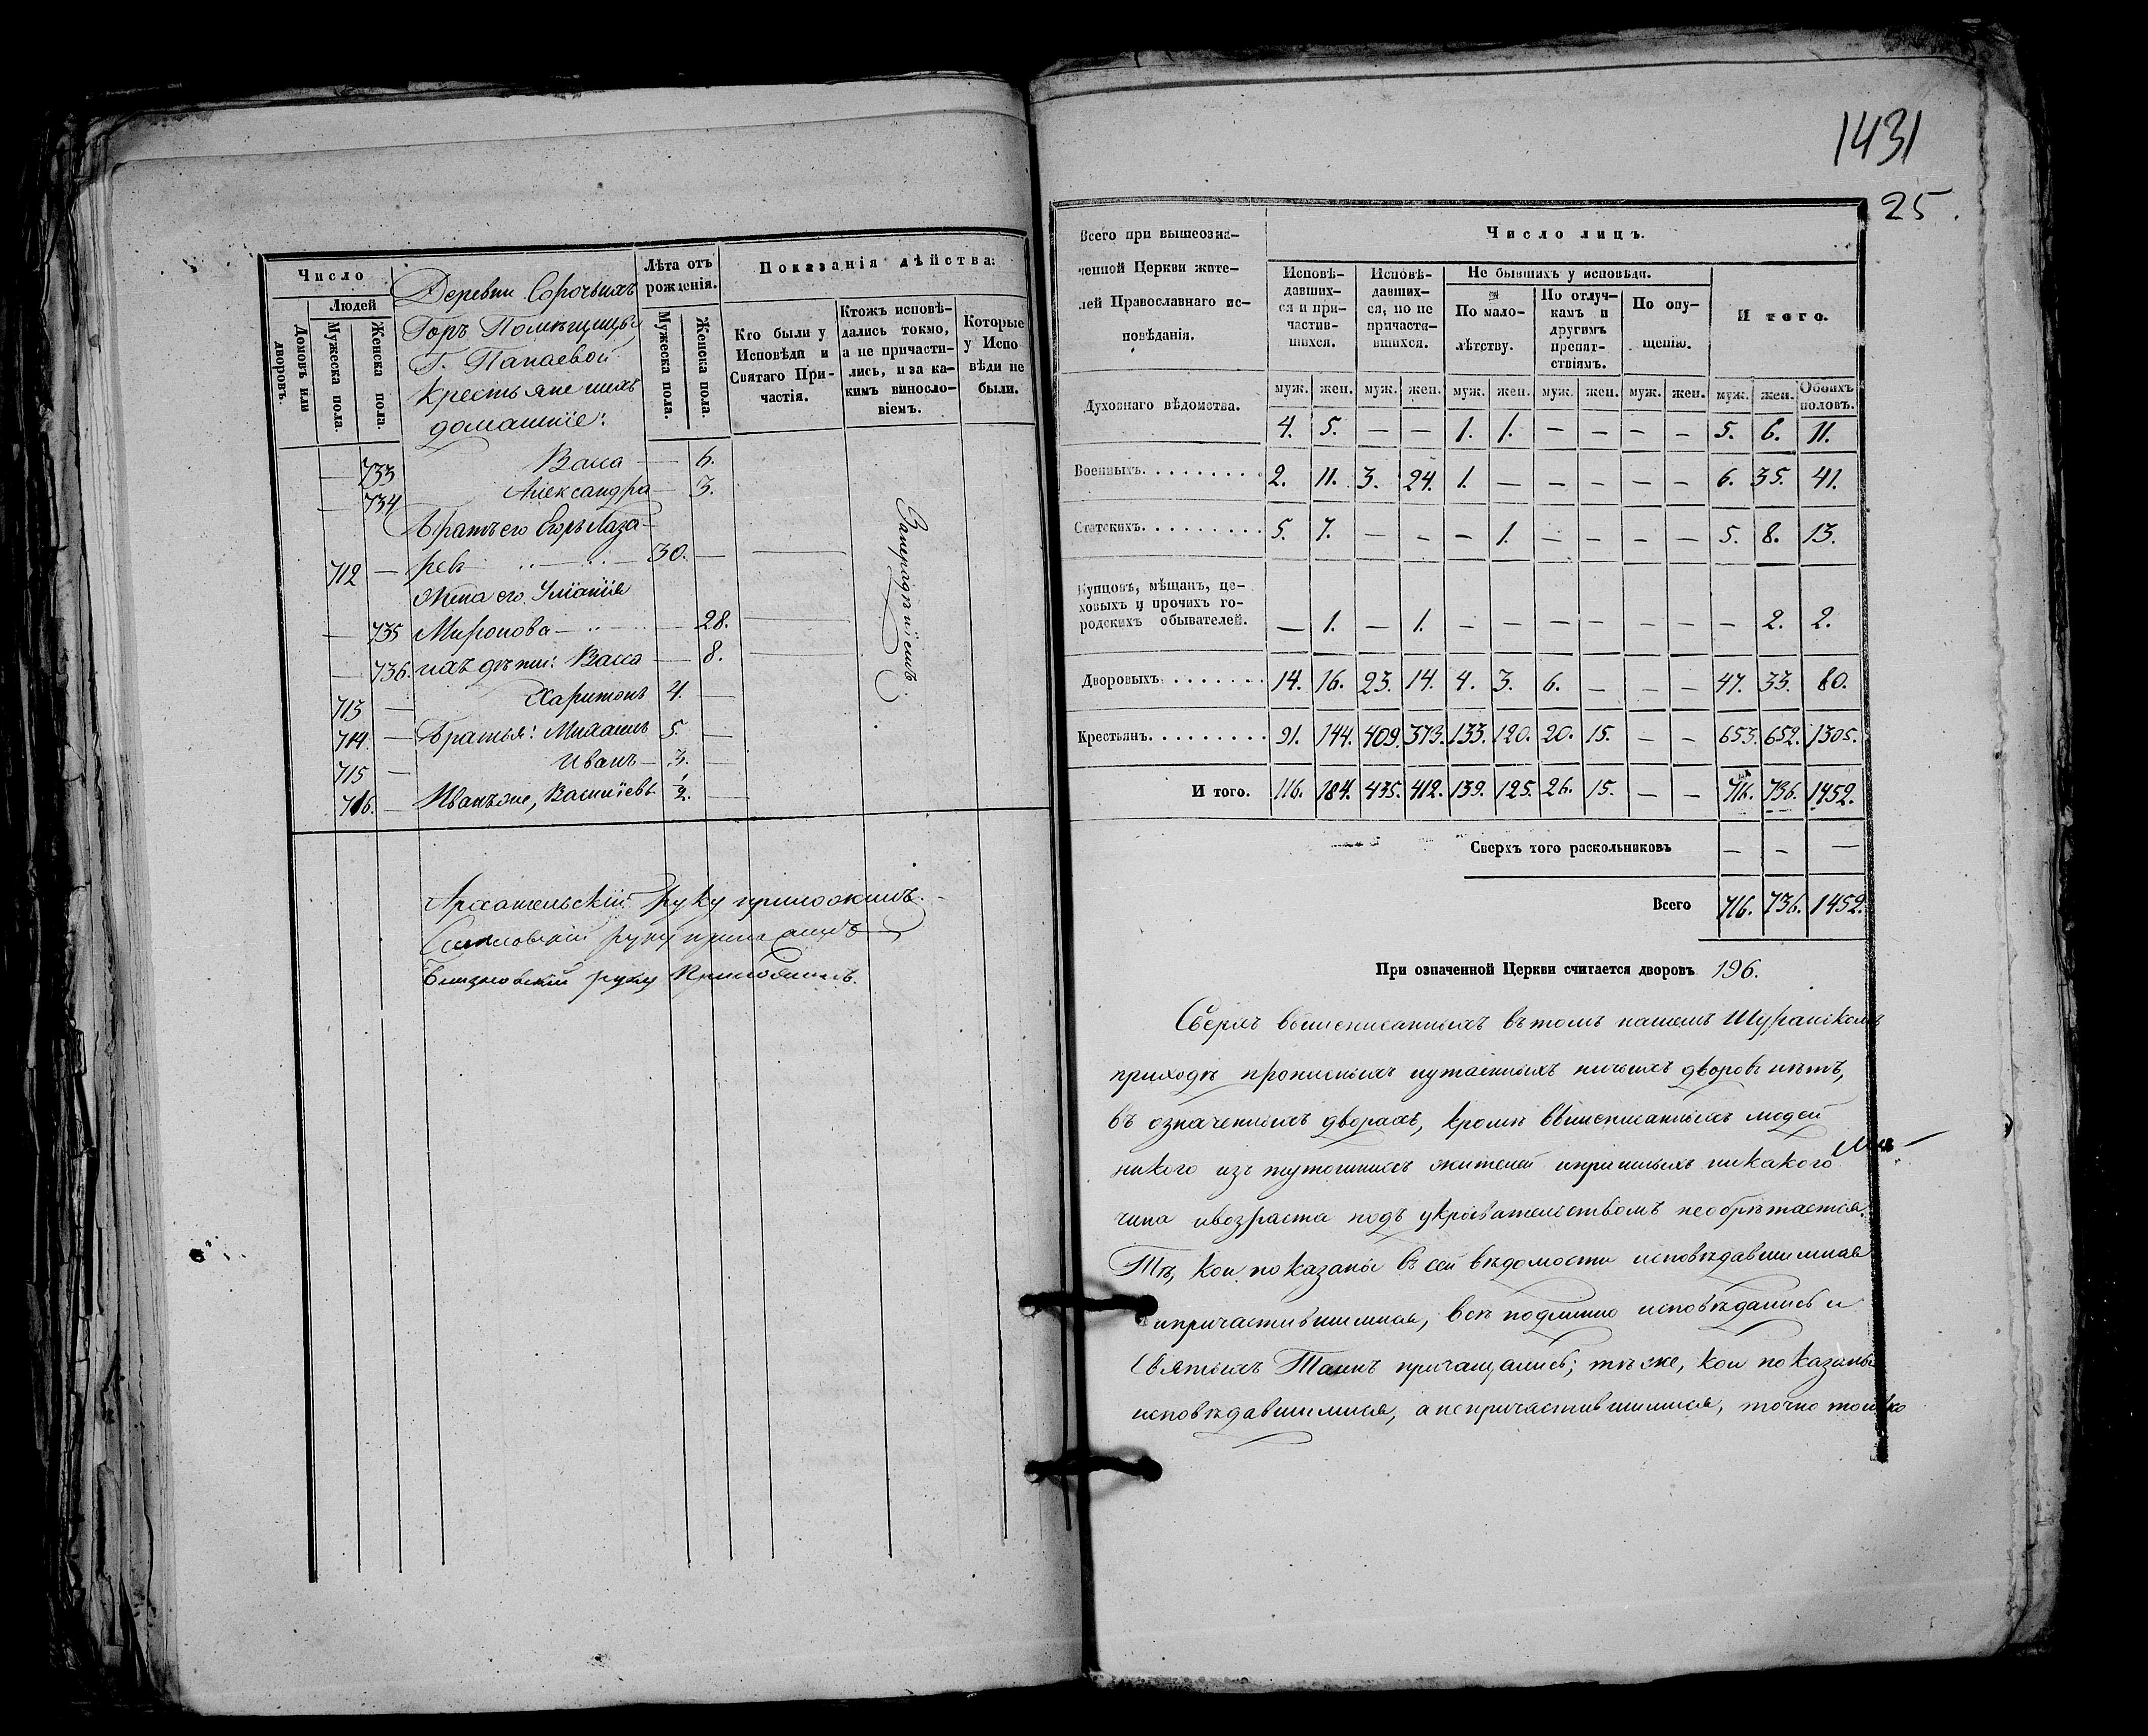 Число
Людей
Домовъ или дворовъ.
Мужеска пола.
Женска пола.
Деревни Сорочьихъ
Горъ Помѣщицы
Г. Панаевой
Крестьяне и ихъ
домашніе:
Лѣта отъ рожденія.
Мужеска пола.
Женска пола.
Показанія дѣйства:
Кто были у Исповѣди и Святаго При-частія.
Ктожъ исповѣ-дались токмо, а не причасти-лись, и за ка-кимъ винослo-віемъ.
Которые у Испо вѣди не были.
— 733 Васса — 6.
— 734 Александра — 3.
Братъ его Егоръ Лаза-
712 — ревъ 30. —
Жена его Уліанія
— 735 Миронова — 28.
— 736. ихъ дѣти: Васса — 8.
713 — Харитонъ 4. —
714. — Братья: Михаилъ 5. —
715 — Иванъ — 3. —
716. — Иванъ же, Васильевы 1/2. —
За нерадѣніемъ.
Архангельскій руку приложилъ.
руку приложилъ
руку приложилъ.
1431
25.
Всего при вышеозна-ченной Церкви жите-лей Православнаго ис-повѣданія.
Число лицъ.
Исповѣ-давших-ся и при-частив-шихся.
Исповѣ-давших-ся, но не причасти-вшихся.
Не бывшихъ у исповѣди.
По мало-лѣтству.
По отлуч-камъ и другимъ препят-ствіямъ.
По опу-щенію.
Итого.
муж. жен. муж. жен. муж. жен. муж. жен. муж. жен. муж. жен. Обоихъ половъ.
Духовнаго вѣдомства. 4. 5. — — 1. 1. — — — — 5. 6. 11.
Военныхъ. 2. 11. 3. 24. 1. — — — — — 6. 35. 41.
Статскихъ. 5. 7. — — — 1. — — — — 5. 8. 13.
Купцовъ, мѣщанъ, це-
ховыхъ и прочихъ го-
родскихъ обывателей. — 1. — 1. — — — — — — — 2. 2.
Дворовыхъ 14. 16. 23. 14. 4. 3. 6. — — — 47. 33. 80.
Крестьянъ. 91. 144. 409. 373. 133. 120. 20. 15. — — 653. 652. 1305.
И того. 116. 184. 435. 412. 139. 125. 26. 15. — — 716. 736. 1452.
Сверхъ того раскольниковъ — — —
Всего 716. 736. 1452.
При означенной Церкви считается дворовъ 196.
Сверхъ вышеписанныхъ въ томъ нашемъ Шуранскомъ
приходѣ прописныхъ и утаенныхъ ничьихъ дворовъ нѣтъ,
въ означенныхъ дворахъ, кромѣ вышеписанныхъ людей
никого изъ тутошнихъ жителей и пришлыхъ никакого
чина и возраста подъ укрывательствомъ не обрѣтается.
Тѣ, кои показаны въ сей вѣдомости исповѣдавшимися
и причастившимися, всѣ подлинно исповѣдались и
Святыхъ Таинъ причащались; тѣ же, кои показаны
исповѣдавшимися, а не причастившимися, точно только